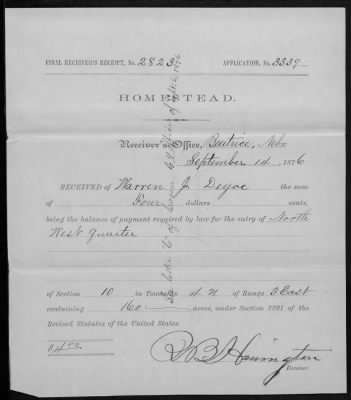 FINAL RECEIVER'S RECEIPT, No. 2823
APPLICATION, No. 3339
HOMESTEAD.
Receiver's Office, Beatrice, Nbr.
September 14, 1876
RECEIVED of Warren J. Deyoe the sum
of Four dollars cents,
being the balance of payment required by law for the entry of North
West quarter
of Section 10 in Township 4 N of Range 3 East
containing 160 acres, under Section 2291 of the
Revised Statutes of the United States.
$ 4.00
R B Harrington
Receiver.
See letter of